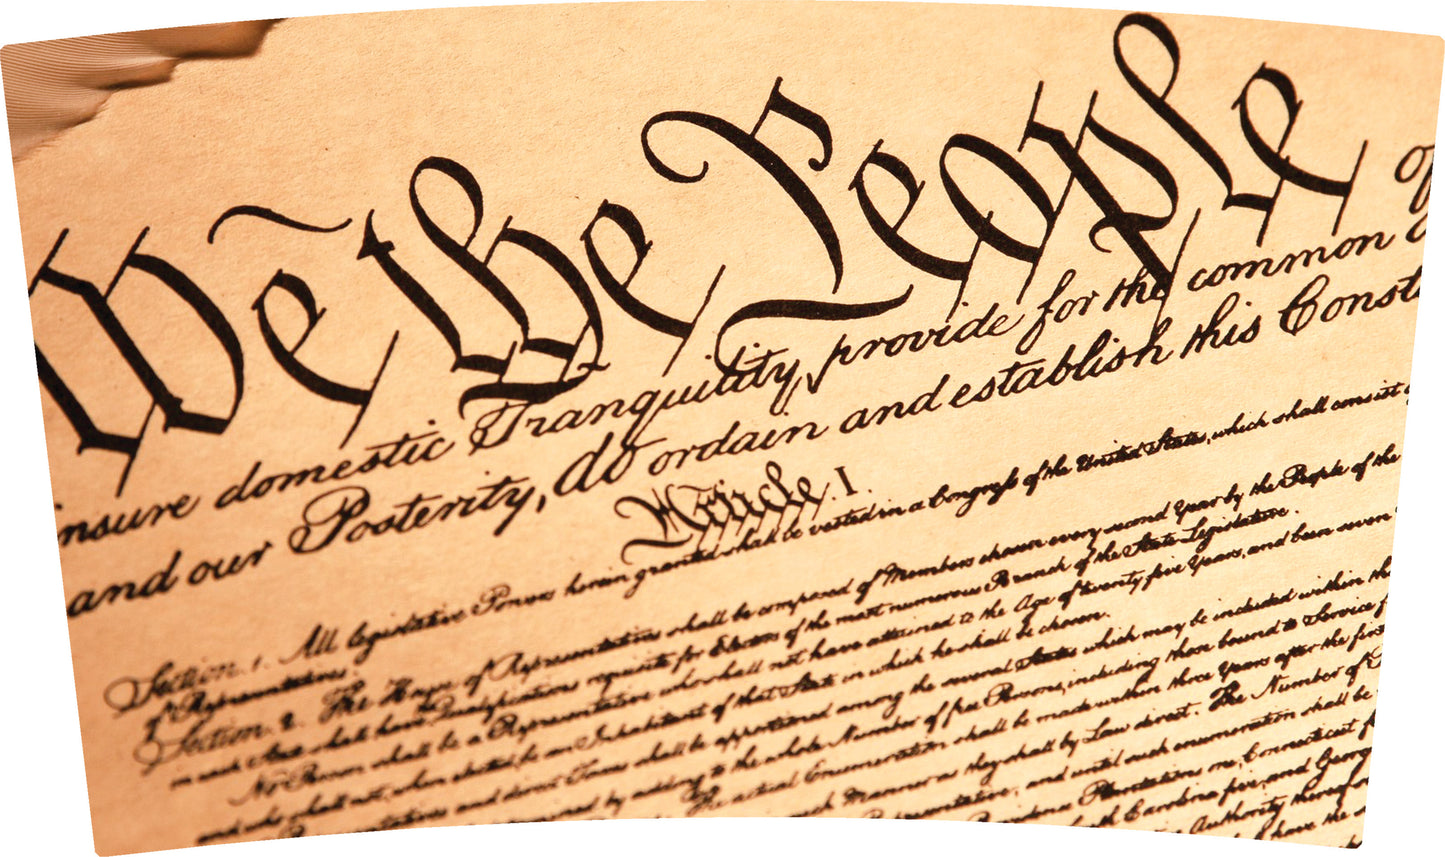 We the People
insure domestic Tranquility, provide for the common
and our Posterity, do ordain and establish this Const
Article. I.
Section. 1. All legislative Powers herein granted shall be vested in a Congress of the United States, which shall consist
of Representatives.
Section. 2. The House of Representatives shall be composed of Members chosen every second Year by the People of the
in each State shall have Qualifications requisite for Electors of the most numerous Branch of the State Legislature.
No Person shall be a Representative who shall not have attained to the Age of twenty five Years, and been seven
and who shall not, when elected, be an Inhabitant of that State in which he shall be chosen.
and direct Taxes shall be apportioned among the several States which may be included within
by adding to the whole Number of free Persons, including those bound to Service
The actual Enumeration shall be made within three Years after the first
such Manner as they shall by Law direct. The Number of
Representative; and until such enumeration shall be
Plantations one, Connecticut
Carolina five, and Georg
Authority thereof
have the